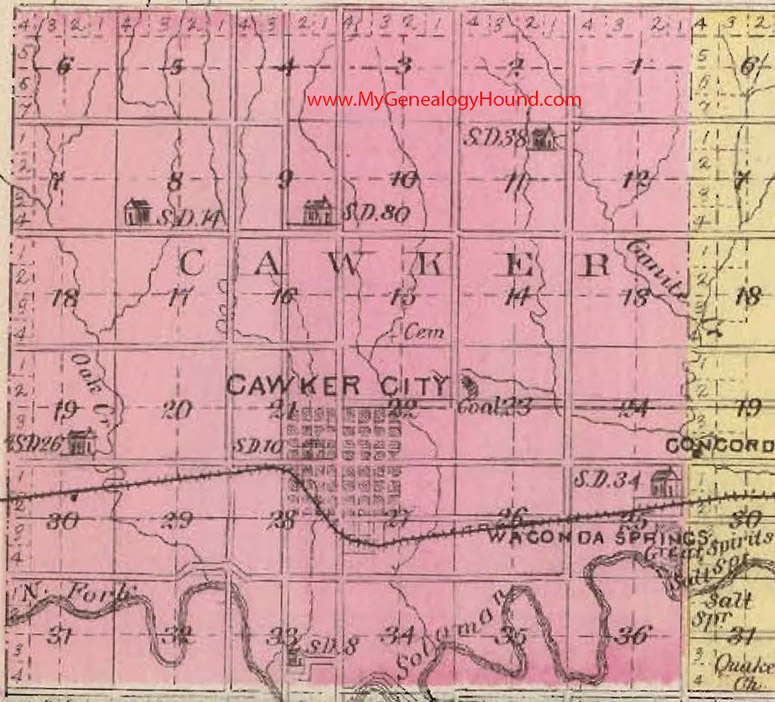 4 3 2 1 4 3 2 1 4 3 2 1 4 3 2 1 4 3 2 1 4 3 2 1 4 3 2
5 6 7
6 5 4 3 2 1 6
www.MyGenealogyHound.com
S.D.38
7 8 9 10 11 12 7
S.D.14 S.D.80
C A W K E R
18 17 16 15 14 13 18
Cem
Oak Cr
CAWKER CITY
19 20 21 22 Coal 23 24 19
S.D.26 S.D.10
CONCORD
S.D.34
30 29 28 27 26 25 30
WACONDA SPRINGS
Great Spirits
Salt Spr
N. Fork Solomon
Salt
Spr
31 32 33 34 35 36 31
S.D.8
Quake
Ch.